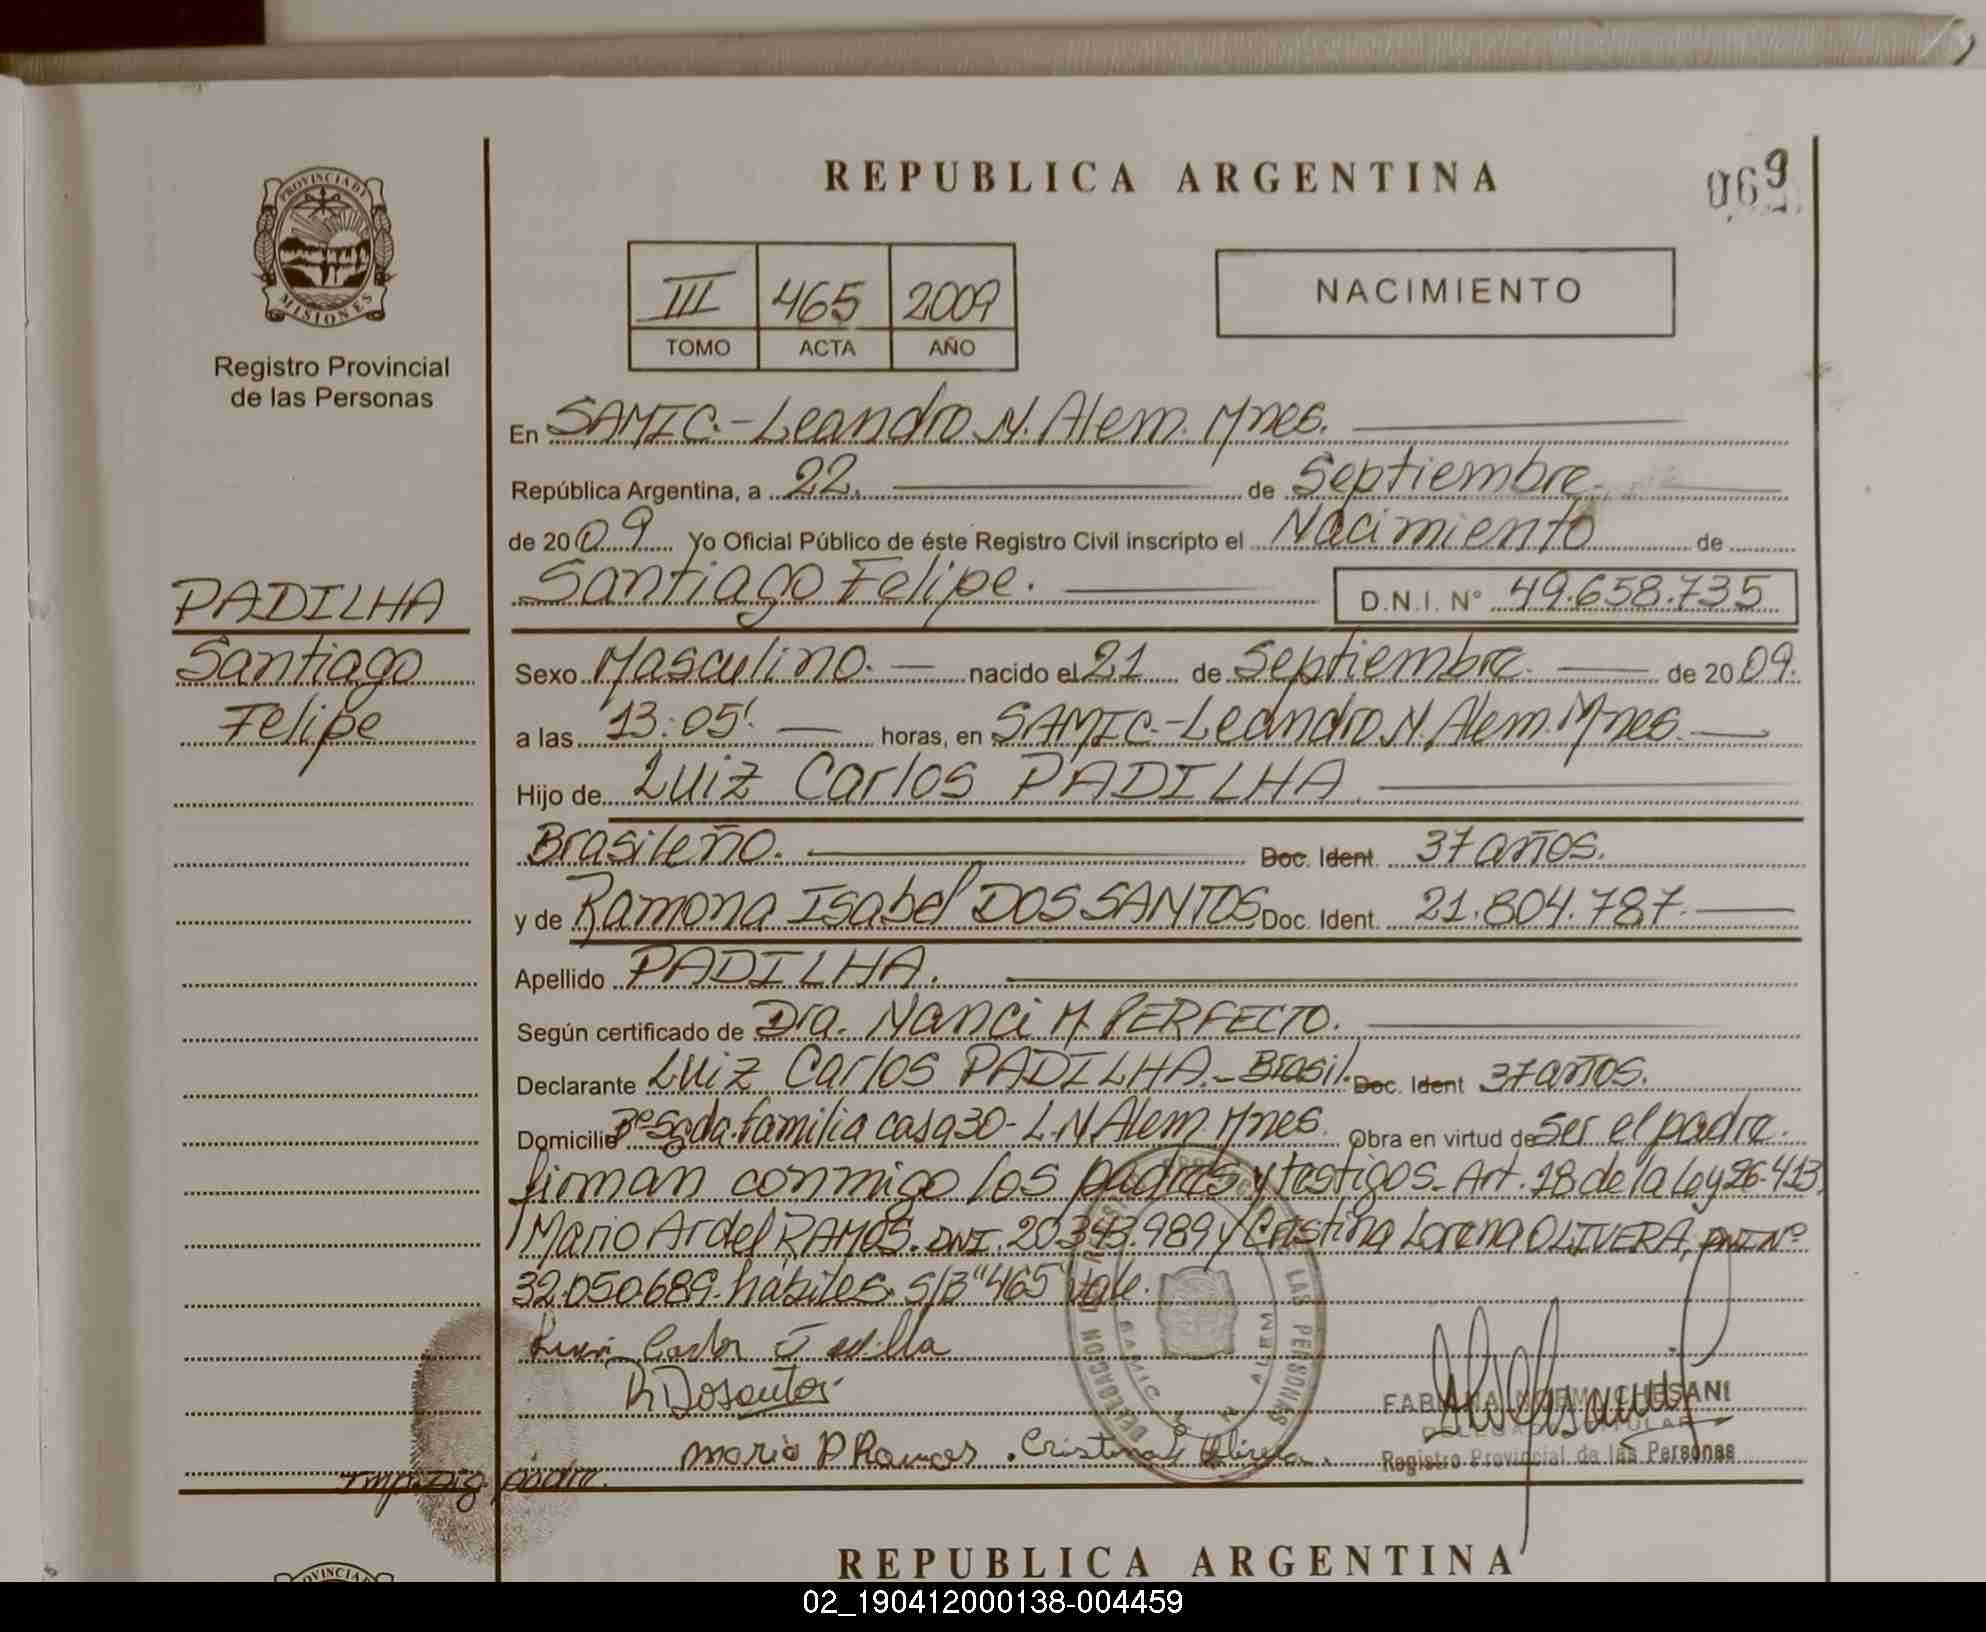 REPUBLICA ARGENTINA
069
PROVINCIA DE
MISIONES
Registro Provincial
de las Personas
III 465 2009
TOMO ACTA AÑO
NACIMIENTO
En SAMIC.-Leandro N. Alem. Mnes.
República Argentina, a 22. de Septiembre.
de 2009 Yo Oficial Público de éste Registro Civil inscripto el Nacimiento de
Santiago Felipe. D.N.I. N° 49.658.735
PADILHA
Santiago
Felipe
Sexo Masculino. nacido el 21 de Septiembre. de 2009.
a las 13:05'. horas, en SAMIC-Leandro N. Alem. Mnes.
Hijo de Luiz Carlos PADILHA.
Brasileño. Doc. Ident. 37 años.
y de Ramona Isabel DOS SANTOS Doc. Ident. 21.804.787.
Apellido PADILHA.
Según certificado de Dra. Nanci M. PERFECTO.
Declarante Luiz Carlos PADILHA.-Brasil. Doc. Ident 37 años.
Domicilio Bº Sgda. familia casa 30- L.N. Alem. Mnes. Obra en virtud de Ser el padre.
firman conmigo los padres y testigos. Art. 28 de la Ley 26.413.
Mario Ardel RAMOS. DNI. 20.343.989 y Cristina Lorena OLIVERA, DNI Nº
32.050.689. hábiles. S/B "465" Vale.
R Dosantos
Mario Ramos. Cristina Olivera.
DELEGACION LAS PERSONAS
SAMIC L. N. ALEM
FABIANA NORMA CHESANI
DELEGADA TITULAR
Registro Provincial de las Personas
Imp. Dig. padre.
REPUBLICA ARGENTINA
02_190412000138-004459